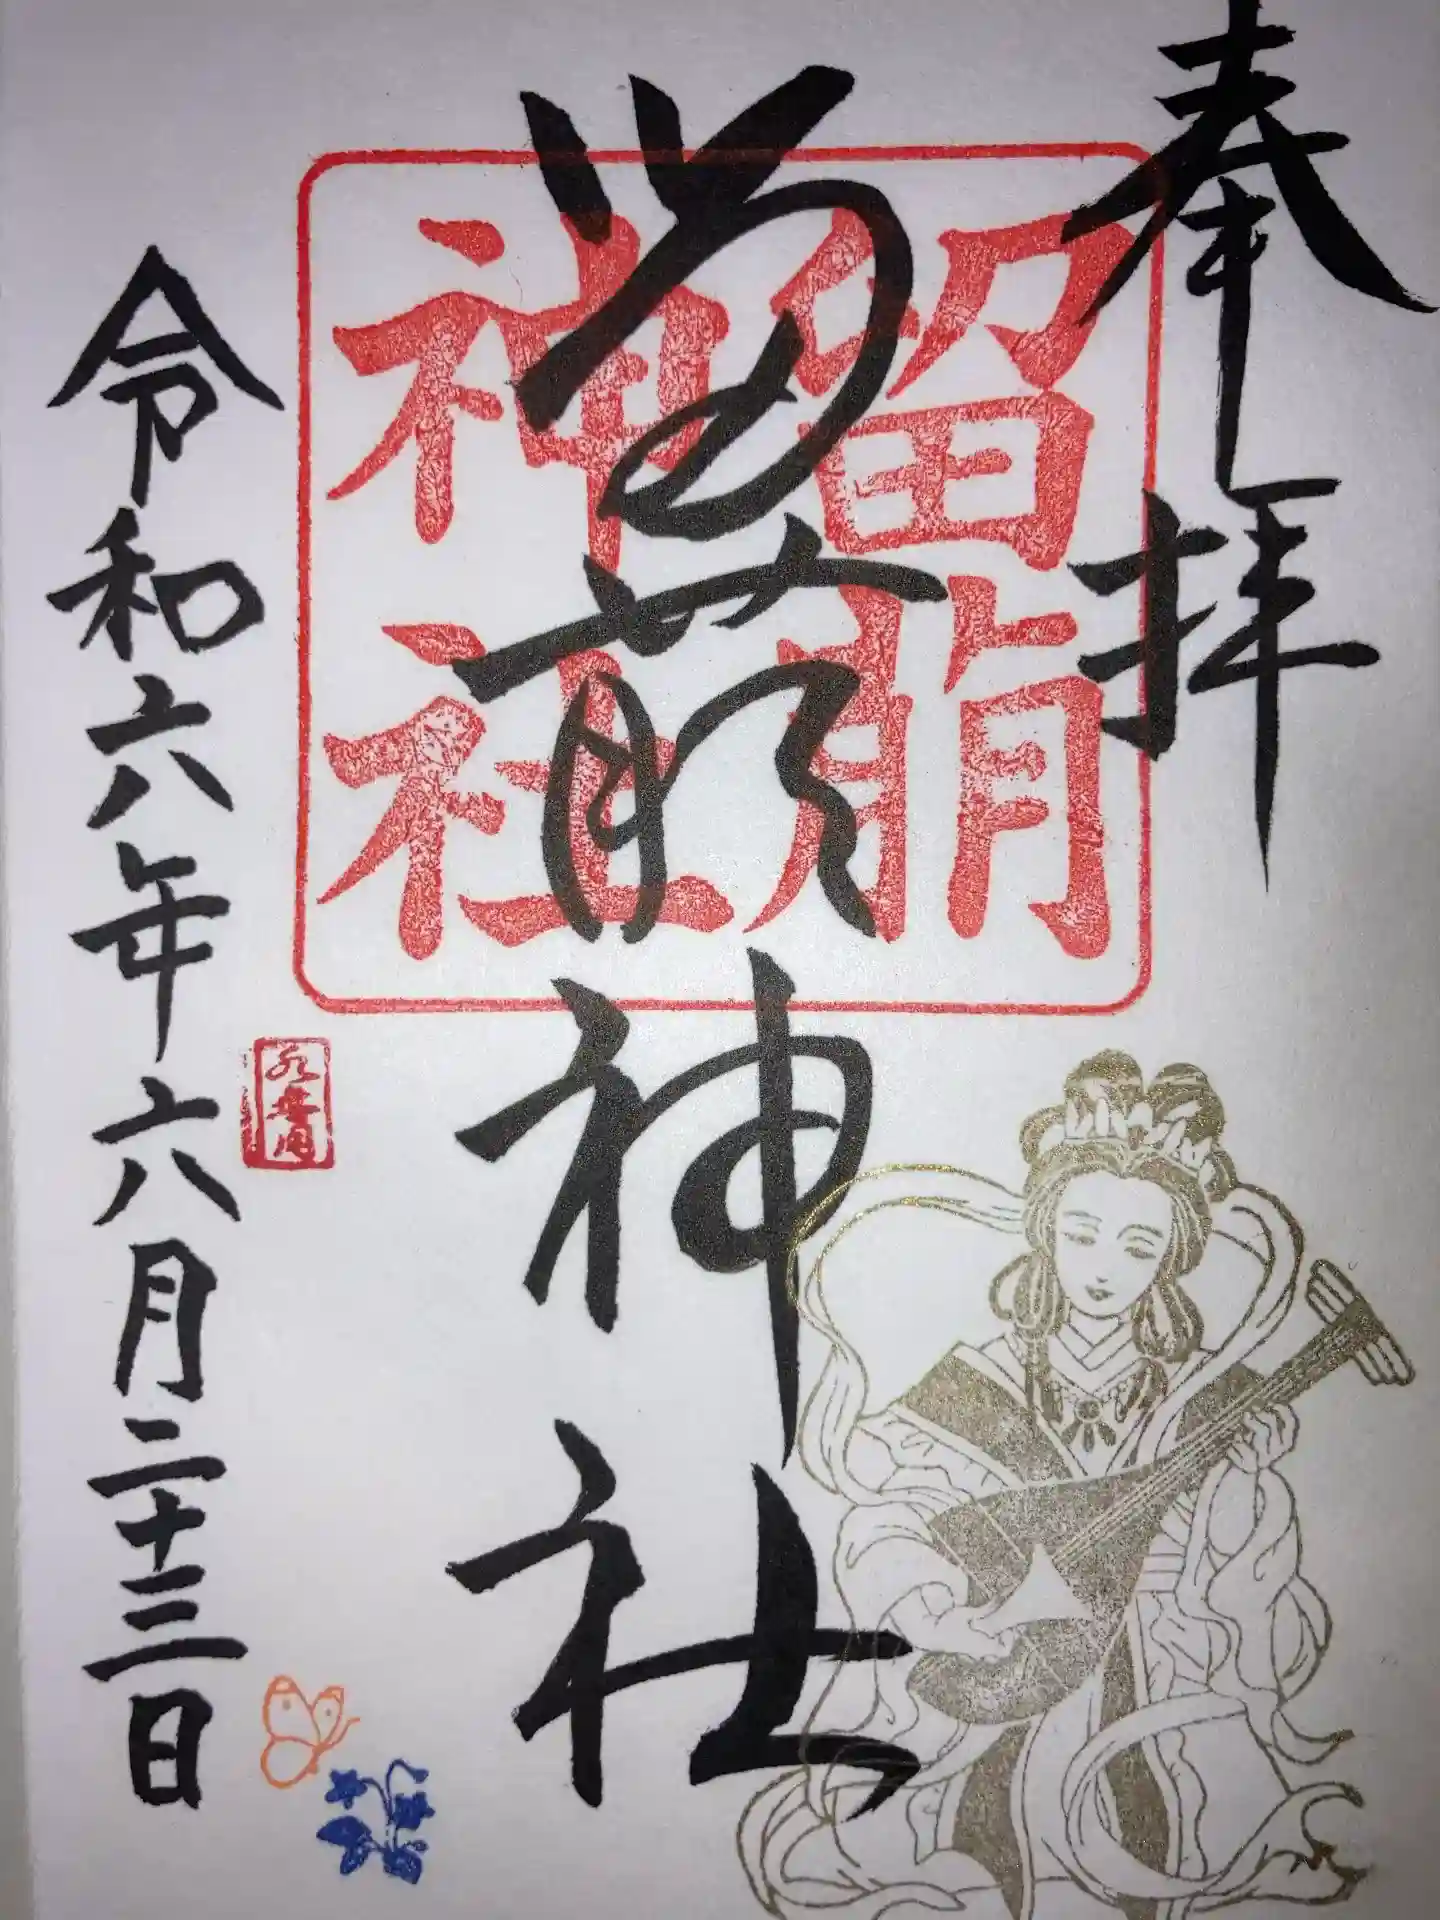 奉拝
留萌神社
留萌神社
令和六年六月二十三日